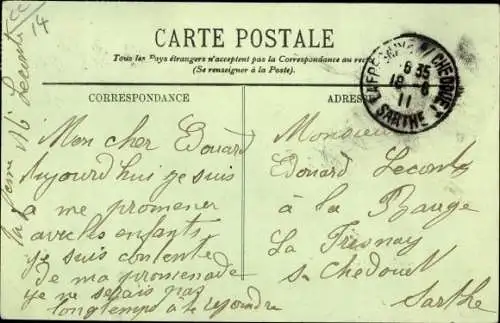 14
Ta femme M. Lecomte
CARTE POSTALE
Tous les Pays étrangers n'acceptent pas la Correspondance au rec
(Se renseigner à la Poste).
CORRESPONDANCE
Mon cher Edouard
Aujourd'hui je suis
à me promener
avec les enfants
je suis contente
de ma promenade
je ne serais pas
longtemps à te rejoindre
ADRES
Monsieur
Edouard Lecomte
à la Bauge
La Fresnay
s Chedouet
Sarthe
LA FRESNAYE S/ CHEDOUET
6 35
18 - 6
11
SARTHE